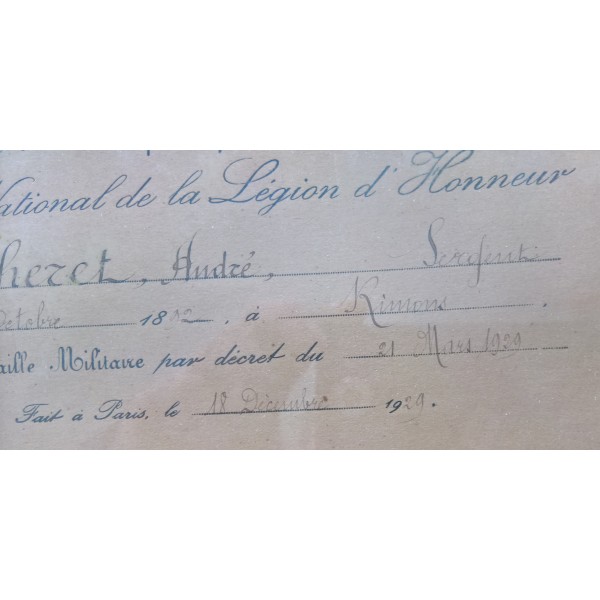 National de la Légion d'Honneur
heret, André,
Octobre 18 , à Rimons .
aille Militaire par décret du 21 Mars 1929
Fait à Paris, le 18 Décembre 1929.